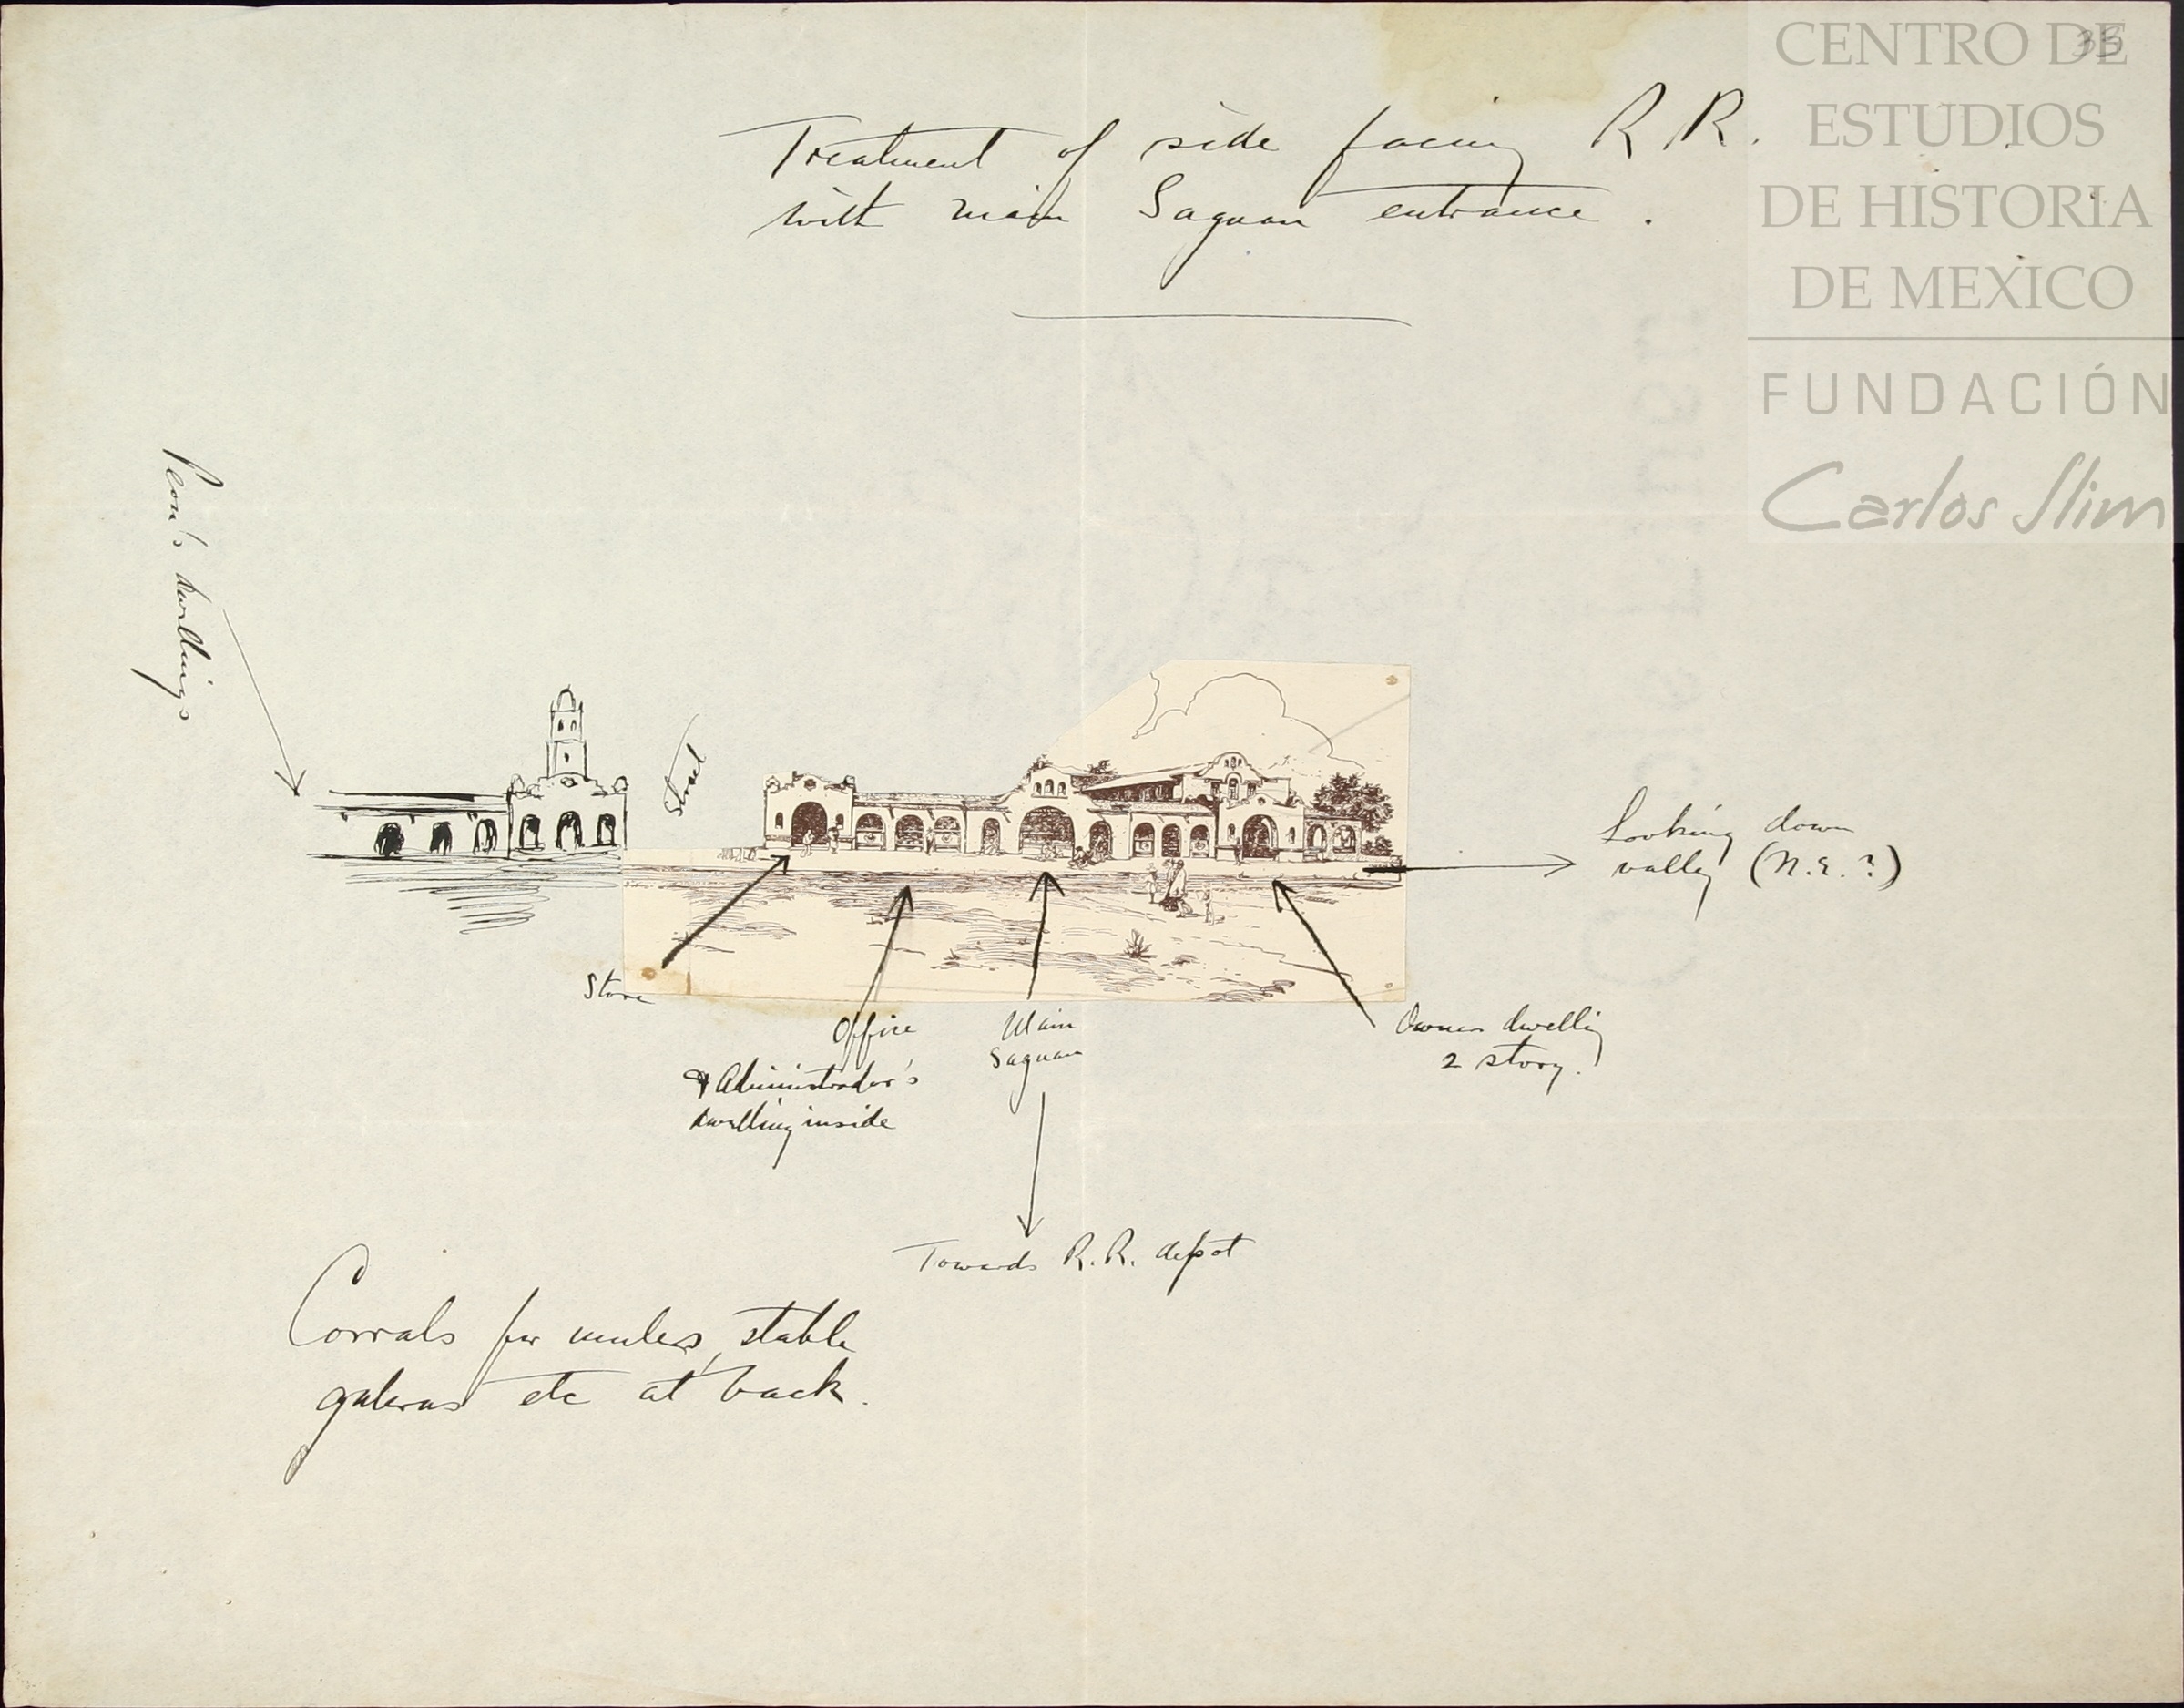 33
CENTRO DE
ESTUDIOS
DE HISTORIA
DE MEXICO
FUNDACIÓN
Carlos Slim
Treatment of side facing R R.
with main Saguan entrance.
Peon's dwellings
Street
Looking down
valley (N.E.?)
Store
Office
& Administrador's
dwelling inside
Main
Saguan
Owners dwelling
2 story.
Towards R.R. depot
Corrals for mules, stable
galeras etc at back.